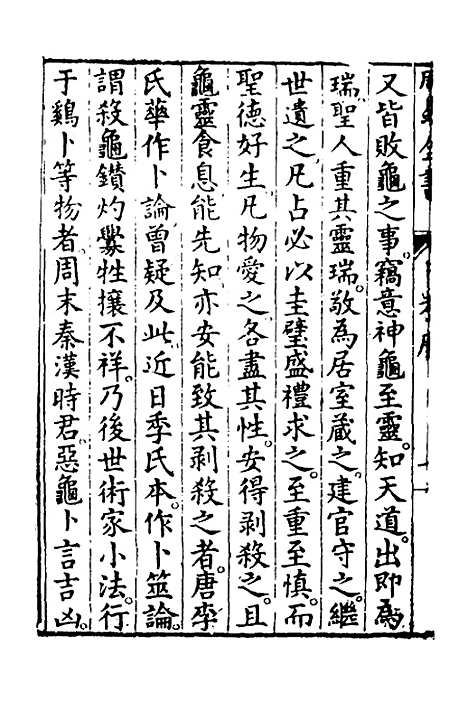 又皆敗龜之事。竊意神龜至靈。知天道。出即爲
瑞。聖人重其靈瑞。敬為居室藏之。建官守之。繼
世遺之。凡占必以圭璧盛禮求之。至重至慎。而
聖德好生。凡物愛之。各盡其性。安得剥殺之。且
龜靈食息能先知。亦安能致其剥殺之者。唐李
氏華作卜論。曾疑及此。近日季氏本。作卜筮論。
謂殺龜鑽灼釁牲攘不祥。乃後世術家小法。行
于鷄卜等物者。周末秦漢時君。惡龜卜言吉凶。